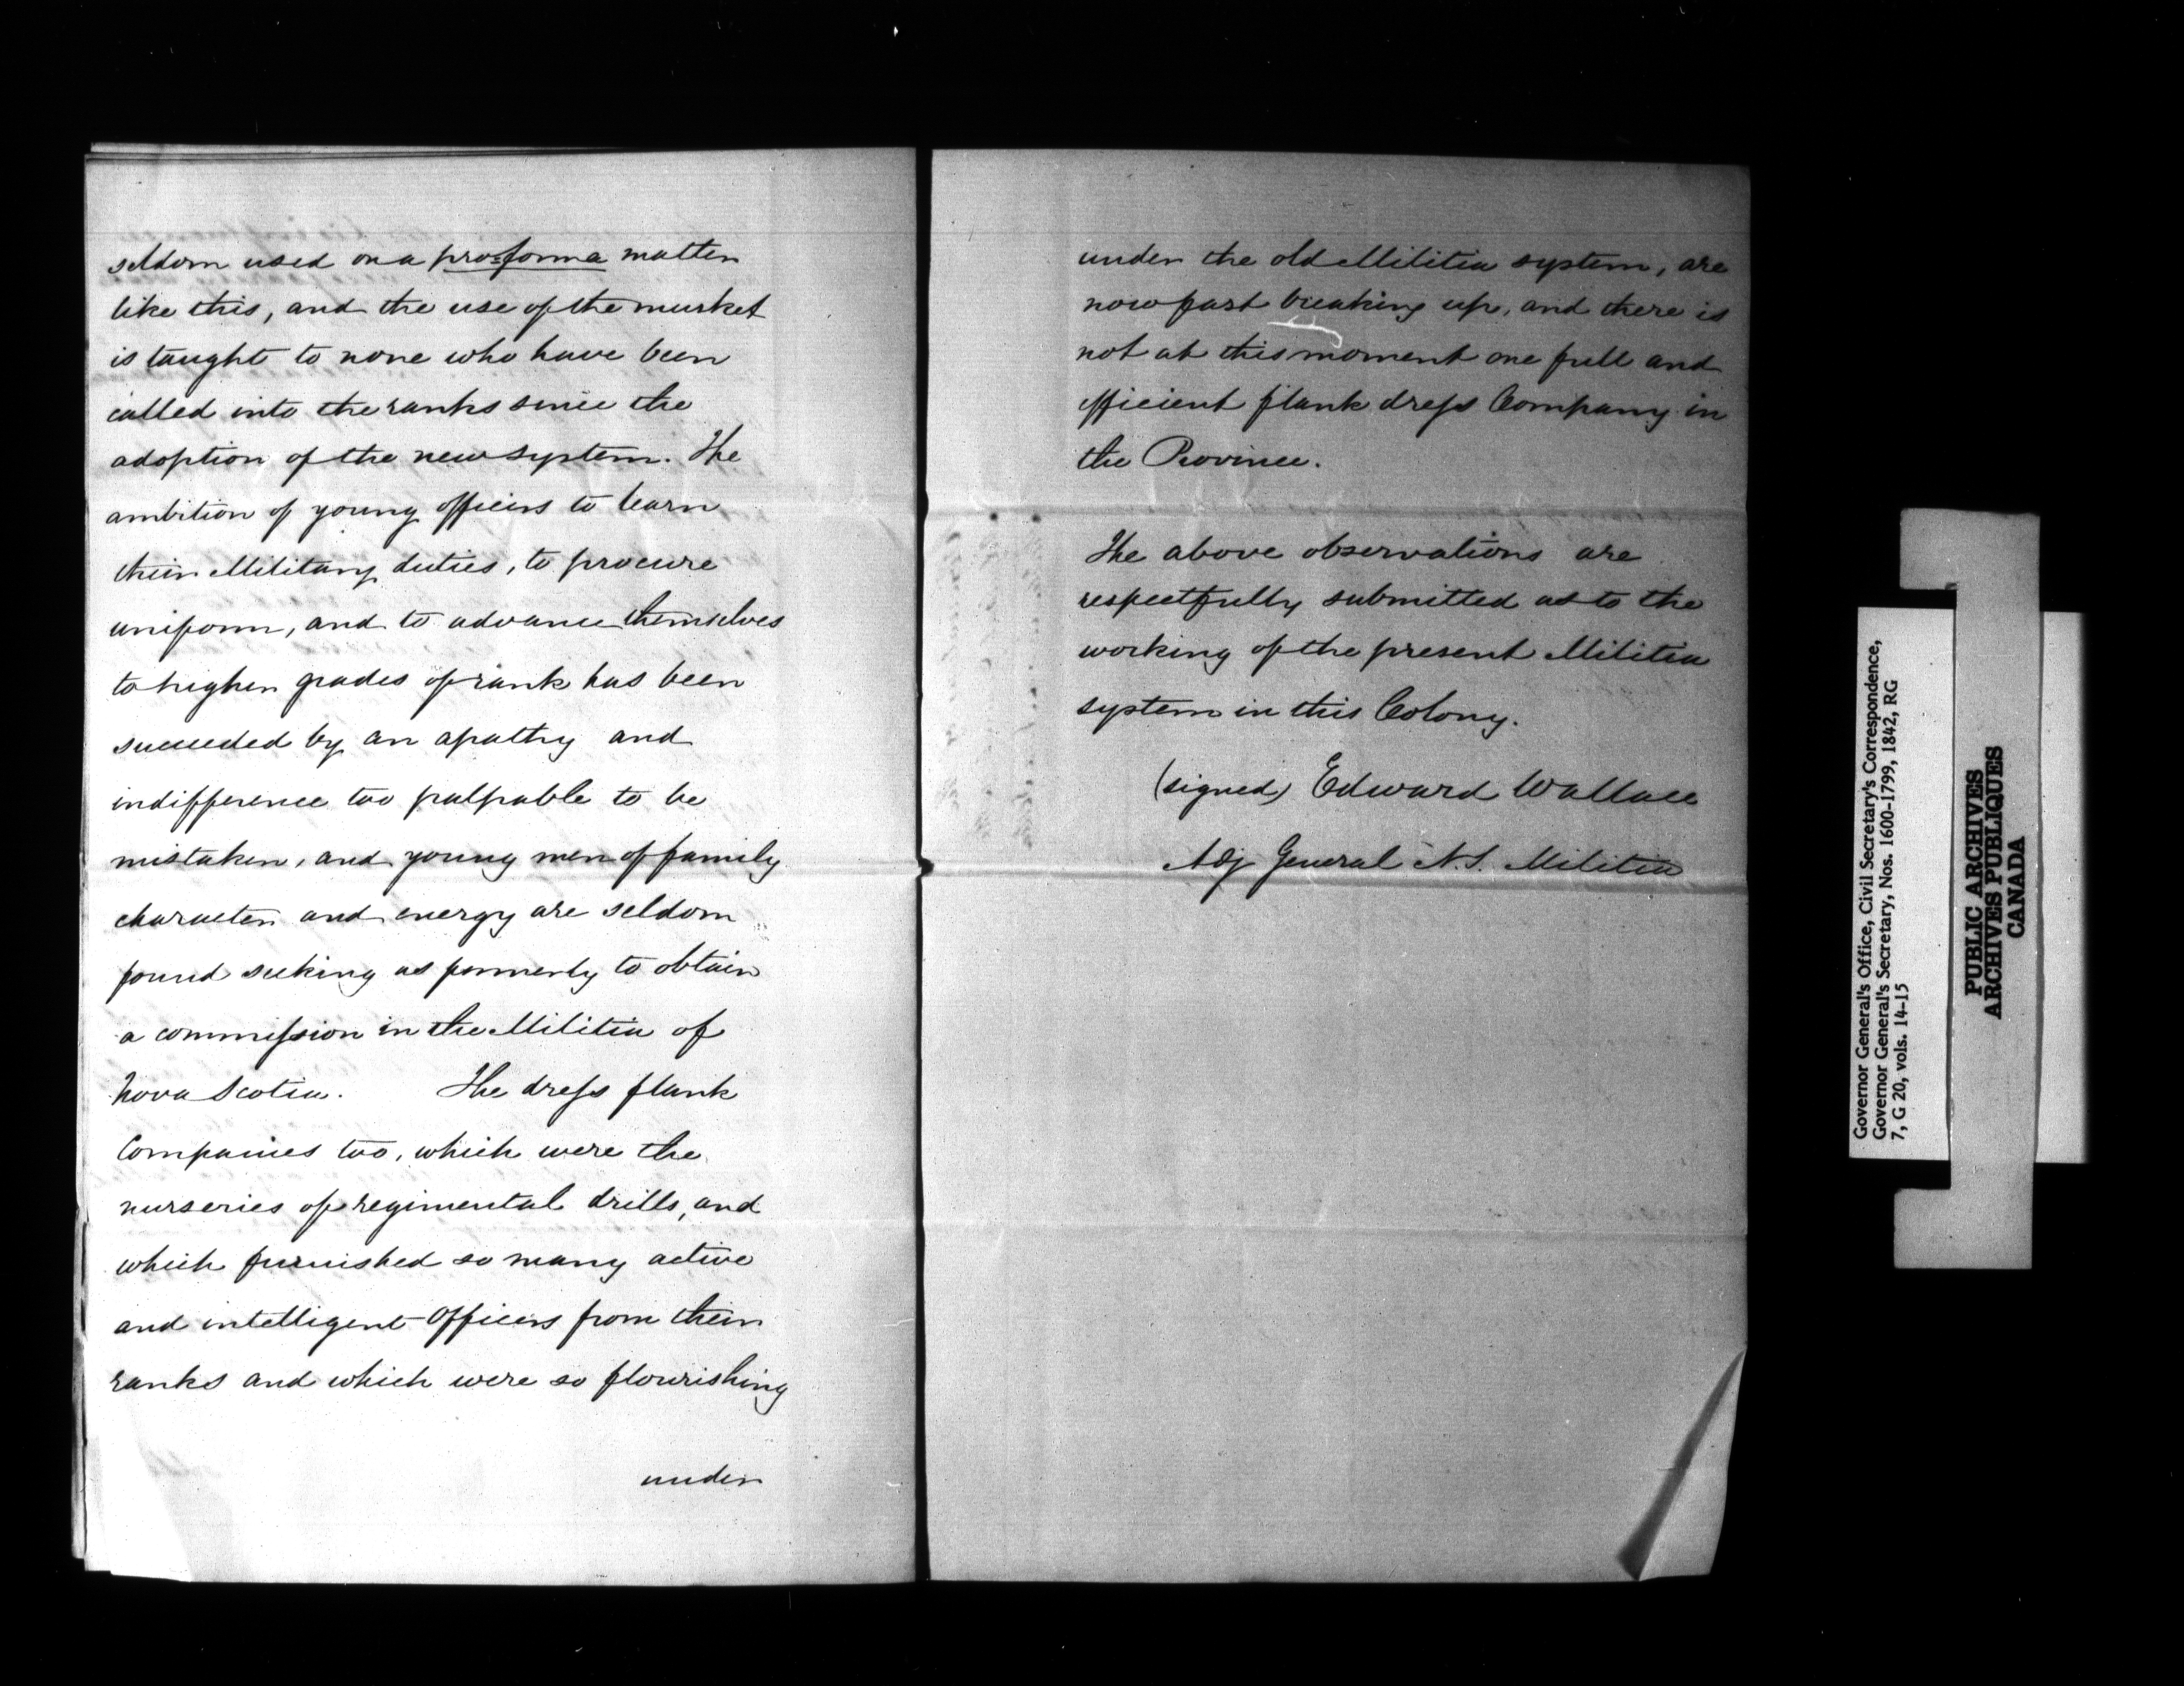 seldom used on a pro=forma matter
like this, and the use of the musket
is taught to none who have been
called into the ranks since the
adoption of the new system. The
ambition of young officers to learn
their Military duties, to procure
uniform, and to advance themselves
to higher grades of rank has been
succeeded by an apathy and
indifference too palpable to be
mistaken, and young men of family
character and energy are seldom
found seeking as formerly to obtain
a commission in the Militia of
Nova Scotia. The dress flank
Companies too, which were the
nurseries of regimental drills, and
which furnished so many active
and intelligent Officers from their
ranks and which were so flourishing
under
under the old Militia system, are
now fast breaking up, and there is
not at this moment one full and
efficient flank dress Company in
the Province.
The above observations are
respectfully submitted as to the
working of the present Militia
system in this Colony.
(signed) Edward Wallace
Adj General N.S. Militia
Governor General's Office, Civil Secretary's Correspondence,
Governor General's Secretary, Nos. 1600-1799, 1842, RG
7, G 20, vols. 14-15
PUBLIC ARCHIVES
ARCHIVES PUBLIQUES
CANADA